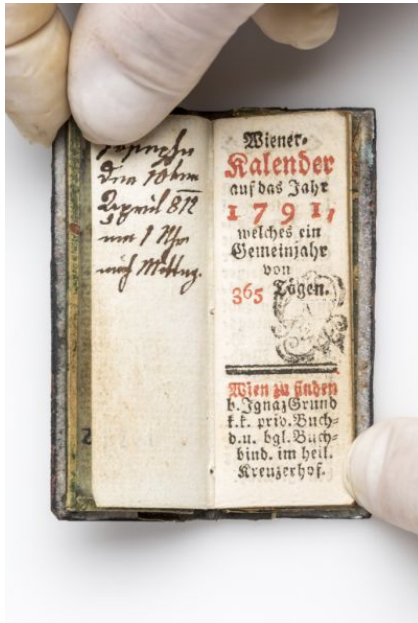 Josepha
den 10ten
April 812
um 1 Uhr
nach Mittag.
Wiener-
Kalender
auf das Jahr
1791,
welches ein
Gemeinjahr
von
365 Tägen.
Wien zu finden
b. Ignaz Grund
k.k. priv. Buch-
d. u. bgl. Buch-
bind. im heil.
Kreuzerhof.